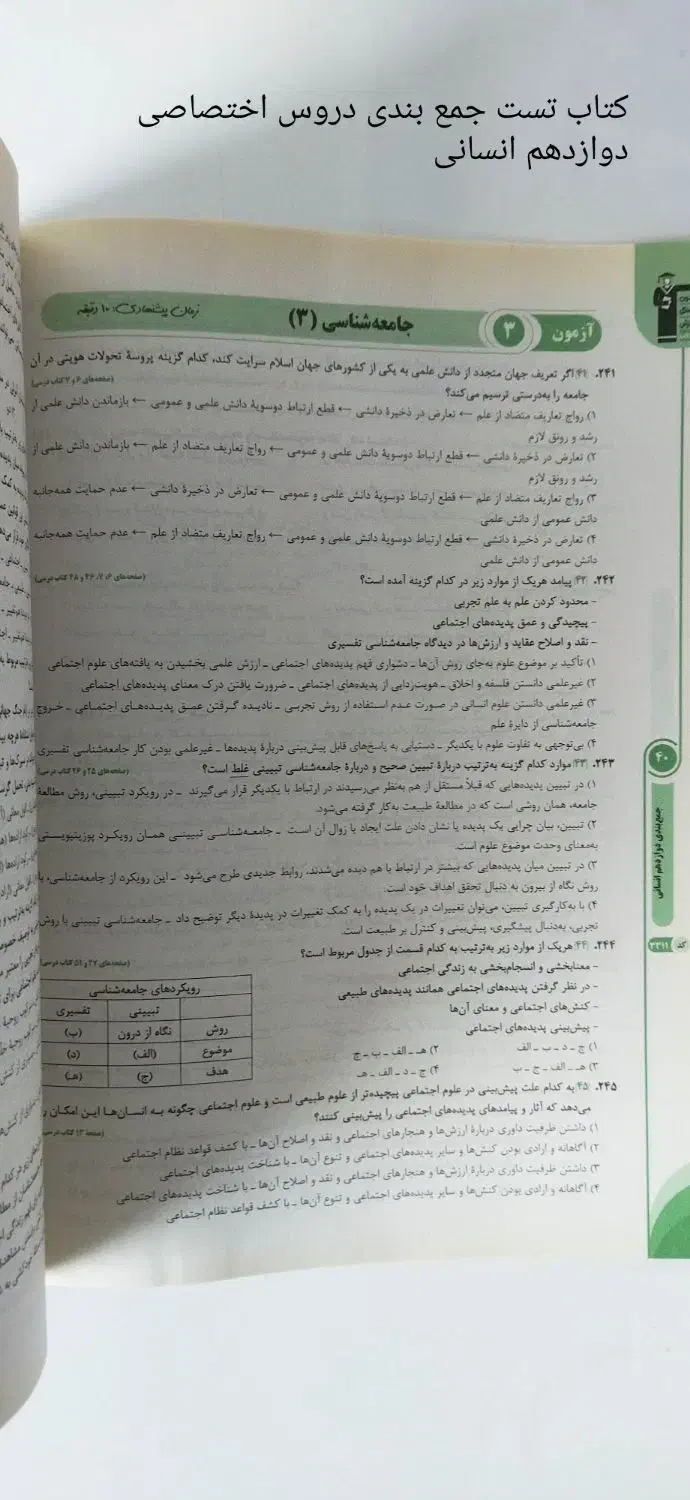 کتاب تست جمع بندی دروس اختصاصی
دوازدهم انسانی
آزمون ۳ جامعه‌شناسی (۳) زمان پیشنهادی: ۱۰ دقیقه
۲۴۱. ۴۱ اگر تعریف جهان متجدد از دانش علمی به یکی از کشورهای جهان اسلام سرایت کند، کدام گزینه پروسهٔ تحولات هویتی در آن
جامعه را به‌درستی ترسیم می‌کند؟ (صفحه‌های ۶ و ۷ کتاب درسی)
۱) رواج تعاریف متضاد از علم ← تعارض در ذخیرهٔ دانشی ← قطع ارتباط دوسویهٔ دانش علمی و عمومی ← بازماندن دانش علمی از
رشد و رونق لازم
۲) تعارض در ذخیرهٔ دانشی ← قطع ارتباط دوسویهٔ دانش علمی و عمومی ← رواج تعاریف متضاد از علم ← بازماندن دانش علمی از
رشد و رونق لازم
۳) رواج تعاریف متضاد از علم ← قطع ارتباط دوسویهٔ دانش علمی و عمومی ← تعارض در ذخیرهٔ دانشی ← عدم حمایت همه‌جانبه
دانش عمومی از دانش علمی
۴) تعارض در ذخیرهٔ دانشی ← قطع ارتباط دوسویهٔ دانش علمی و عمومی ← رواج تعاریف متضاد از علم ← عدم حمایت همه‌جانبه
دانش عمومی از دانش علمی
۲۴۲. ۴۲ پیامد هریک از موارد زیر در کدام گزینه آمده است؟ (صفحه‌های ۶، ۷، ۴۶ و ۴۸ کتاب درسی)
– محدود کردن علم به علم تجربی
– پیچیدگی و عمق پدیده‌های اجتماعی
– نقد و اصلاح عقاید و ارزش‌ها در دیدگاه جامعه‌شناسی تفسیری
۱) تأکید بر موضوع علوم به‌جای روش آن‌ها ـ دشواری فهم پدیده‌های اجتماعی ـ ارزش علمی بخشیدن به یافته‌های علوم اجتماعی
۲) غیرعلمی دانستن فلسفه و اخلاق ـ هویت‌زدایی از پدیده‌های اجتماعی ـ ضرورت یافتن درک معنای پدیده‌های اجتماعی
۳) غیرعلمی دانستن علوم انسانی در صورت عدم استفاده از روش تجربی ـ نادیده گرفتن عمق پدیده‌های اجتماعی ـ خروج
جامعه‌شناسی از دایرهٔ علم
۴) بی‌توجهی به تفاوت علوم با یکدیگر ـ دستیابی به پاسخ‌های قابل پیش‌بینی دربارهٔ پدیده‌ها ـ غیرعلمی بودن کار جامعه‌شناسی تفسیری
۲۴۳. ۴۳ موارد کدام گزینه به‌ترتیب دربارهٔ تبیین صحیح و دربارهٔ جامعه‌شناسی تبیینی غلط است؟ (صفحه‌های ۲۵ و ۲۶ کتاب درسی)
۱) در تبیین پدیده‌هایی که قبلاً مستقل از هم به‌نظر می‌رسیدند در ارتباط با یکدیگر قرار می‌گیرند ـ در رویکرد تبیینی، روش مطالعهٔ
جامعه، همان روشی است که در مطالعهٔ طبیعت به‌کار گرفته می‌شود.
۲) تبیین، بیان چرایی یک پدیده یا نشان دادن علت ایجاد یا زوال آن است ـ جامعه‌شناسی تبیینی همان رویکرد پوزیتیویستی
به‌معنای وحدت موضوع علوم است.
۳) در تبیین میان پدیده‌هایی که بیشتر در ارتباط با هم دیده می‌شدند، روابط جدیدی طرح می‌شود ـ این رویکرد از جامعه‌شناسی، با
روش نگاه از بیرون به دنبال تحقق اهداف خود است.
۴) با به‌کارگیری تبیین، می‌توان تغییرات در یک پدیده را به کمک تغییرات در پدیدهٔ دیگر توضیح داد ـ جامعه‌شناسی تبیینی با روش
تجربی، به‌دنبال پیشگیری، پیش‌بینی و کنترل بر طبیعت است.
۲۴۴. ۴۴ هریک از موارد زیر به‌ترتیب به کدام قسمت از جدول مربوط است؟ (صفحه‌های ۲۷ و ۵۱ کتاب درسی)
– معنابخشی و انسجام‌بخشی به زندگی اجتماعی
– در نظر گرفتن پدیده‌های اجتماعی همانند پدیده‌های طبیعی
– کنش‌های اجتماعی و معنای آن‌ها
– پیش‌بینی پدیده‌های اجتماعی
۱) ج ـ د ـ ب ـ الف ۲) هـ ـ الف ـ ب ـ ج
۳) هـ ـ الف ـ ج ـ ب ۴) ج ـ د ـ الف ـ هـ
رویکردهای جامعه‌شناسی
تبیینی تفسیری
روش نگاه از درون (ب)
موضوع (الف) (د)
هدف (ج) (هـ)
۲۴۵. ۴۵ به کدام علت پیش‌بینی در علوم اجتماعی پیچیده‌تر از علوم طبیعی است و علوم اجتماعی چگونه به انسان‌ها این امکان را
می‌دهد که آثار و پیامدهای پدیده‌های اجتماعی را پیش‌بینی کنند؟ (صفحهٔ ۱۳ کتاب درسی)
۱) داشتن ظرفیت داوری دربارهٔ ارزش‌ها و هنجارهای اجتماعی و نقد و اصلاح آن‌ها ـ با کشف قواعد نظام اجتماعی
۲) آگاهانه و ارادی بودن کنش‌ها و سایر پدیده‌های اجتماعی و تنوع آن‌ها ـ با شناخت پدیده‌های اجتماعی
۳) داشتن ظرفیت داوری دربارهٔ ارزش‌ها و هنجارهای اجتماعی و نقد و اصلاح آن‌ها ـ با شناخت پدیده‌های اجتماعی
۴) آگاهانه و ارادی بودن کنش‌ها و سایر پدیده‌های اجتماعی و تنوع آن‌ها ـ با کشف قواعد نظام اجتماعی
۴۰
جمع‌بندی دوازدهم انسانی
کد ۲۳۱۱